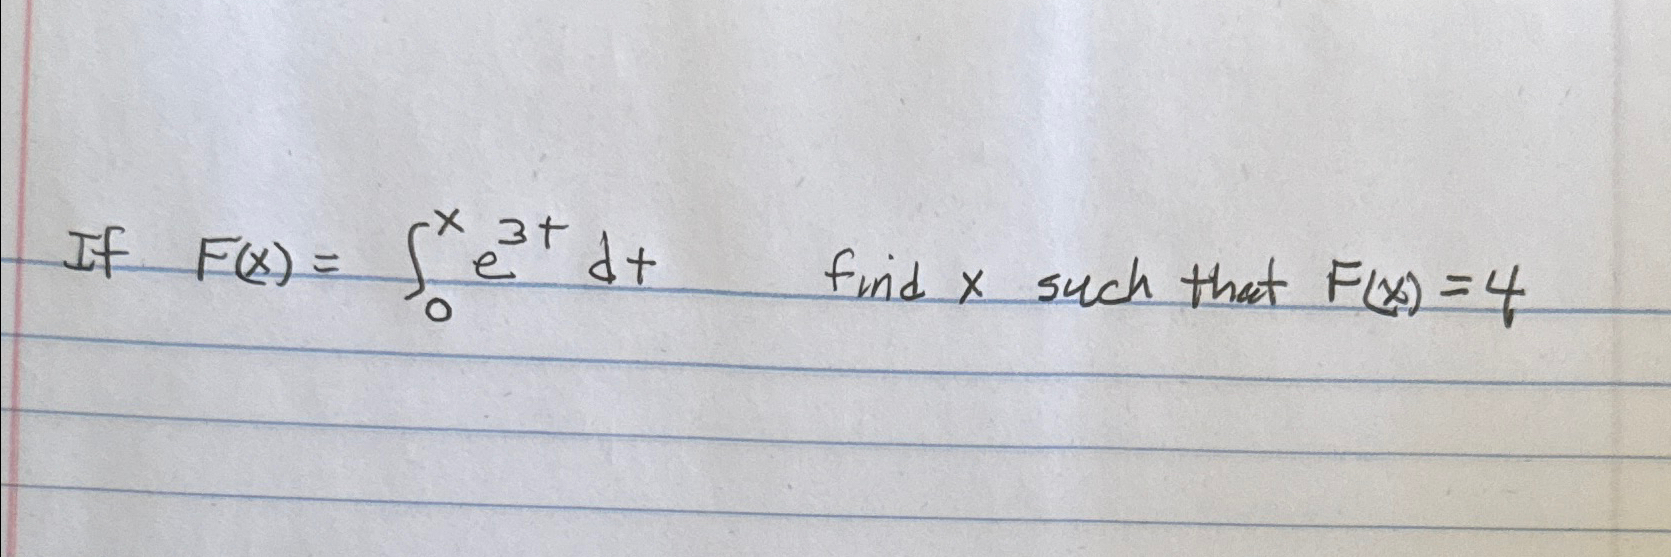 If F(x) = ∫₀ˣ e³ᵗ dt find x such that F(x) = 4